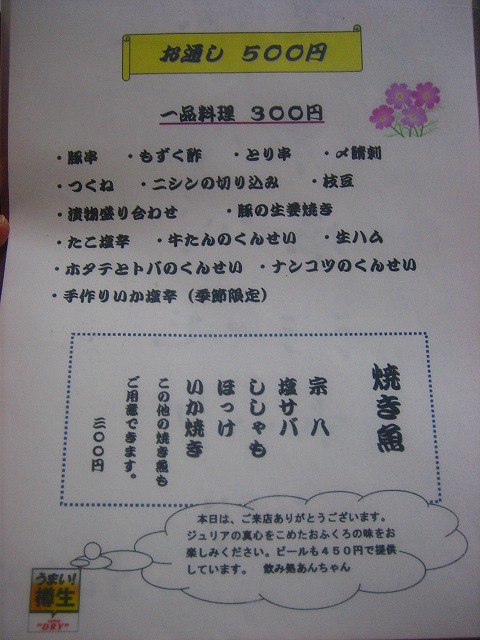 お通し 500円
一品料理 300円
・豚串 ・もずく酢 ・とり串 ・〆鯖刺
・つくね ・ニシンの切り込み ・枝豆
・漬物盛り合わせ ・豚の生姜焼き
・たこ塩辛 ・牛たんのくんせい ・生ハム
・ホタテとトバのくんせい ・ナンコツのくんせい
・手作りいか塩辛（季節限定）
焼き魚
宗八
塩サバ
ししゃも
ほっけ
いか焼き
この他の焼き魚も
ご用意できます。
三〇〇円
本日は、ご来店ありがとうございます。
ジュリアの真心をこめたおふくろの味をお
楽しみください。ビールも450円で提供
しています。 飲み処あんちゃん
うまい!
樽生
"DRY"